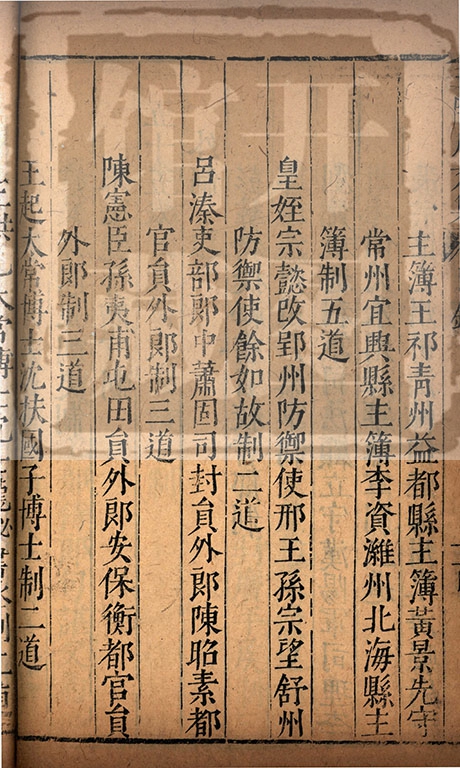 主簿王祁青州益都縣主簿黃景先守
常州宜興縣主簿李資濰州北海縣主
簿制五道
皇姪宗懿改鄆州防禦使邢王孫宗望舒州
防禦使餘如故制二道
呂溱吏部郎中蕭固司封員外郎陳昭素都
官員外郎制三道
陳憲臣孫夷甫屯田員外郎安保衡都官員
外郎制三道
王起太常博士沈扶國子博士制二道